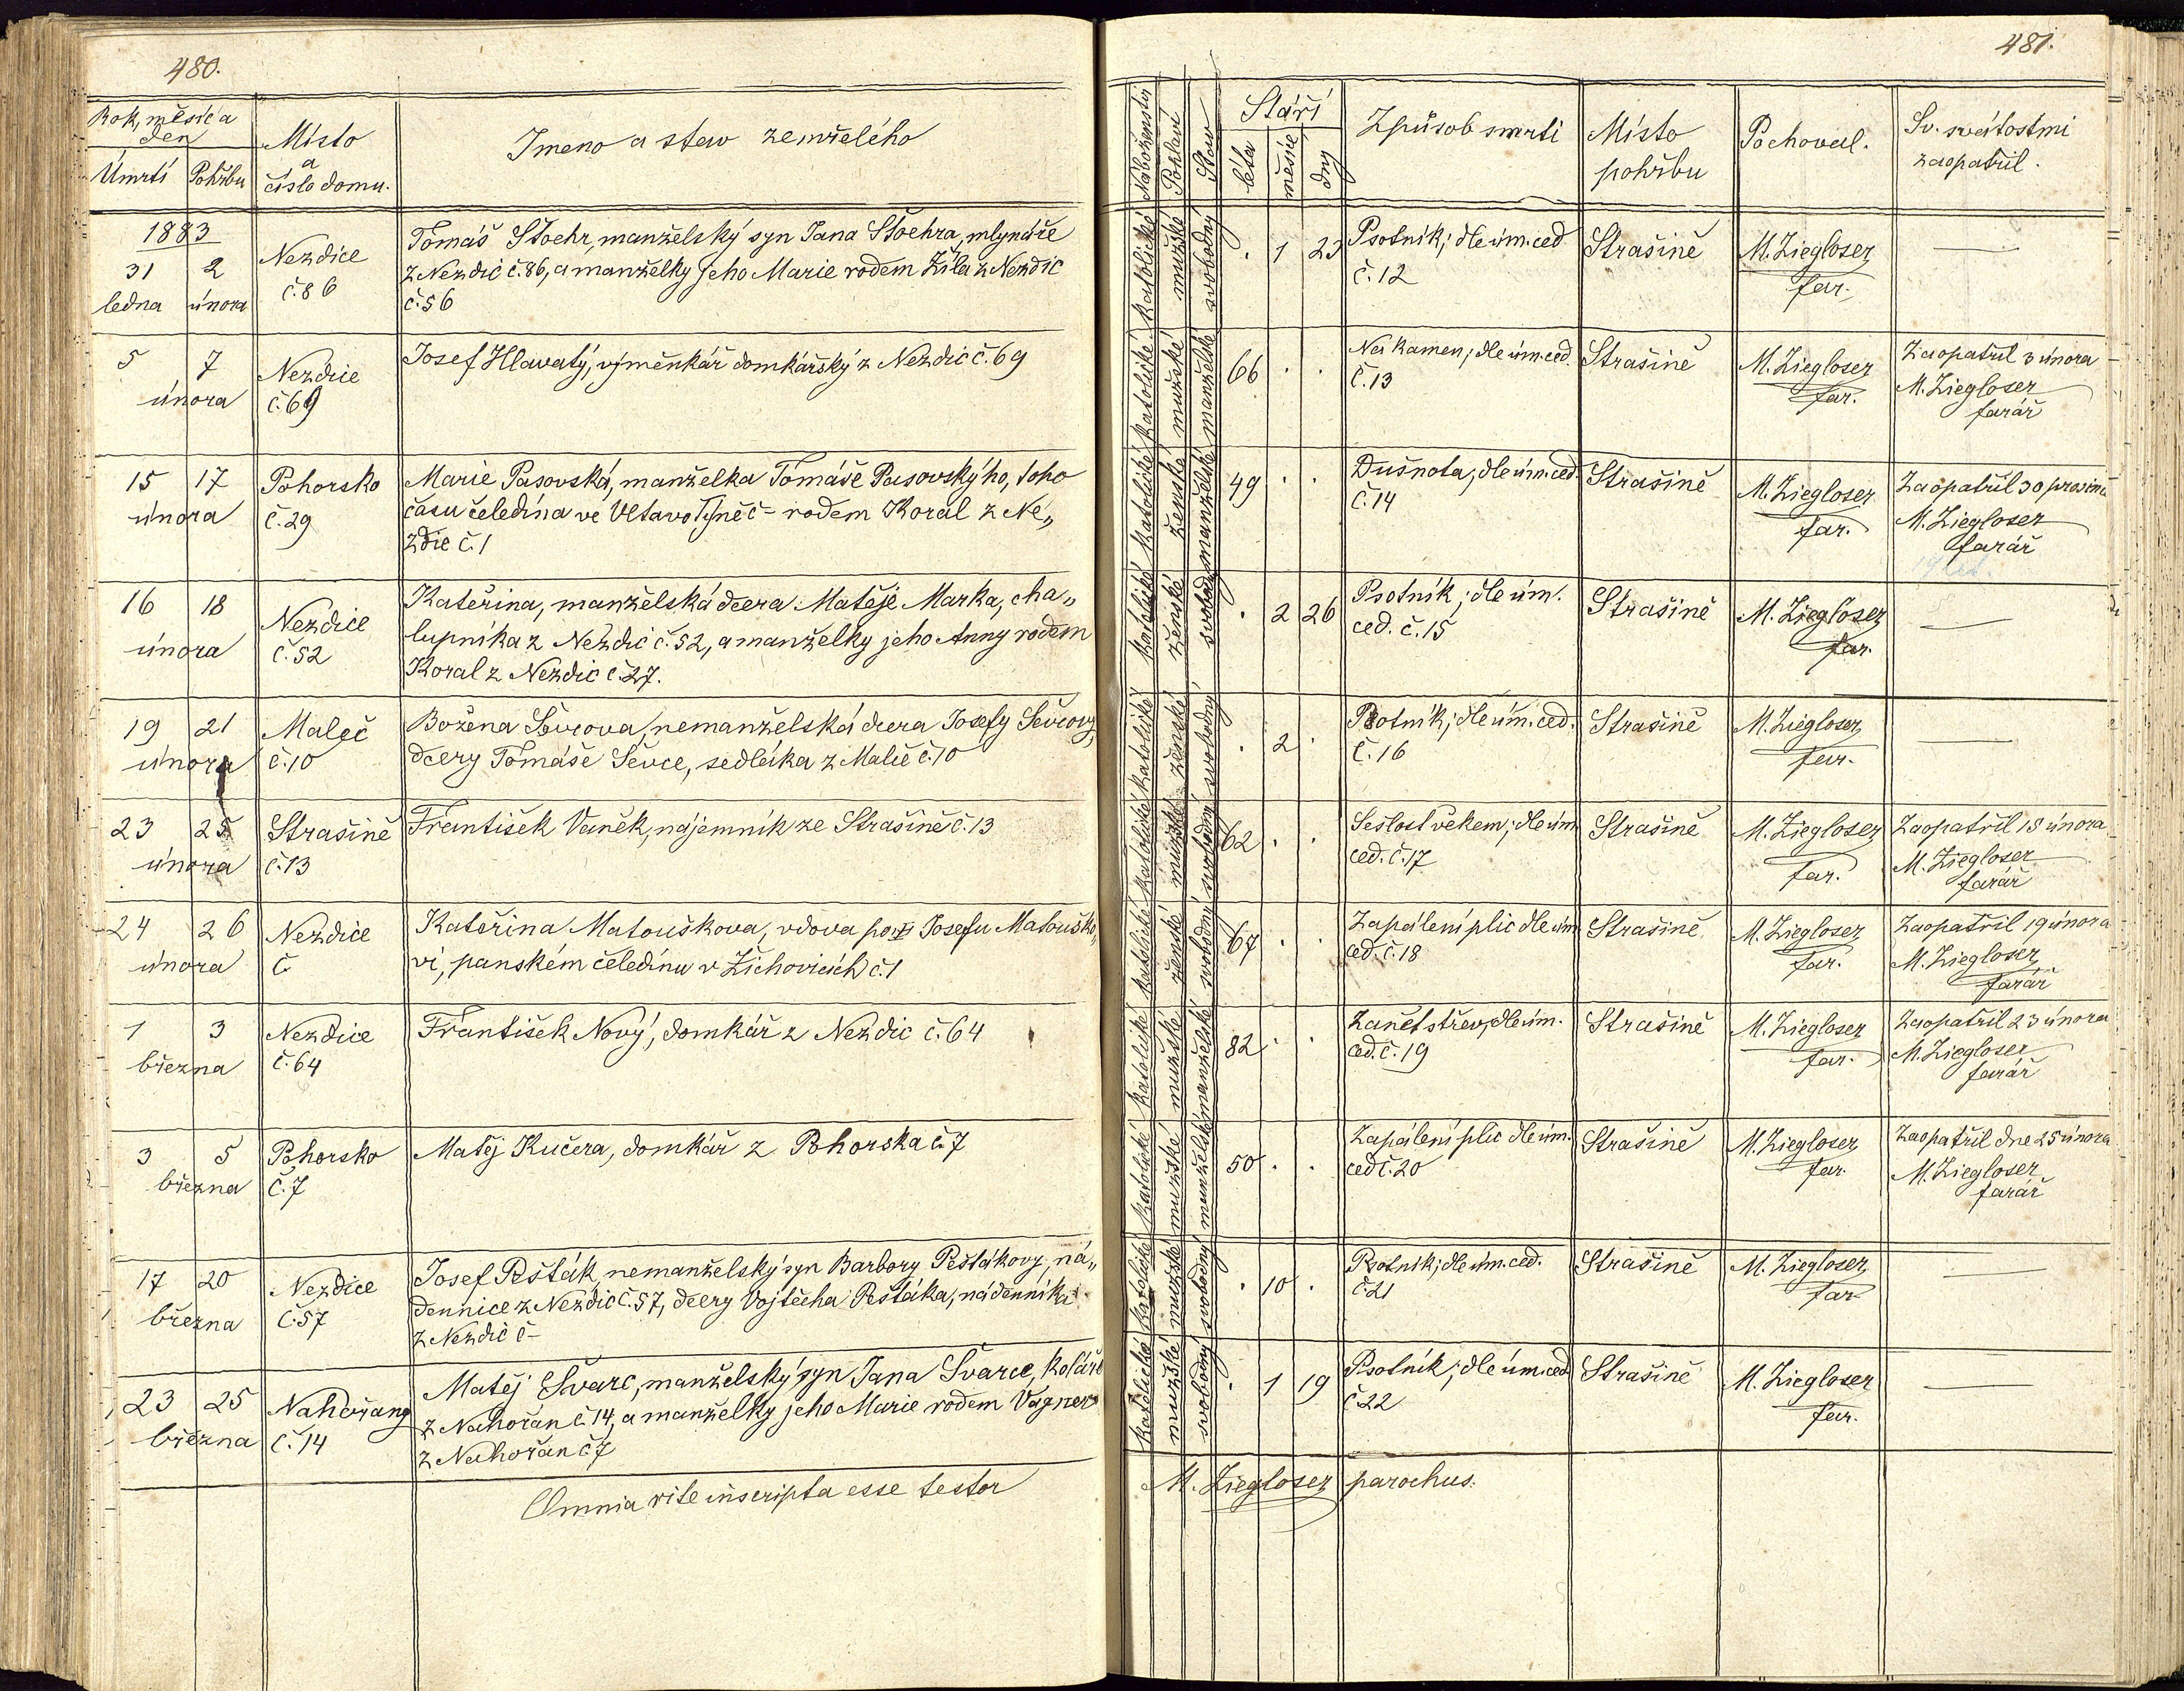 480.
Rok, měsíc a
den
Místo
a
číslo domu.
Jmeno a stav zemřelého
Úmrtí Pohřbu
1883
31 2
ledna února
Nezdice
č. 86
Tomáš Stoehr, manželský syn Jana Stoehra, mlynáře
z Nezdic č. 86, a manželky jeho Marie rodem Žila z Nezdic
č. 56
5 7
února
Nezdice
č. 69
Josef Hlavatý, výměnkář domkářský z Nezdic č. 69
15 17
února
Pohorsko
č. 29
Marie Pasovská, manželka Tomáše Pasovskýho, toho
času čeledína ve VltavoTýně č - rodem Koral z Ne„
zdic č. 1
16 18
února
Nezdice
č. 52
Kateřina, manželská dcera Matěje Marka, cha„
lupníka z Nezdic č. 52, a manželky jeho Anny rodem
Koral z Nezdic č. 27.
19 21
února
Maleč
č. 10
Božena Ševcova, nemanželská dcera Josefy Ševcovy,
dcery Tomáše Ševce, sedláka z Malče č. 10
23 25
února
Strašině
č. 13
František Vaněk, nájemník ze Strašině č. 13
24 26
února
Nezdice
č.
Kateřina Matouškova, vdova po Josefu Matouško„
vi, panském čeledínu v Žichovicích č. 1
1 3
března
Nezdice
č. 64
František Nový, domkář z Nezdic č. 64
3 5
března
Pohorsko
č. 7
Matěj Kučera, domkář z Pohorska č. 7
17 20
března
Nezdice
č. 57
Josef Pešták, nemanželský syn Barbory Peštákovy, ná„
dennice z Nezdic č. 57, dcery Vojtěcha Peštáka, nádenníka
z Nezdic č -
23 25
března
Nahořany
č. 14
Matěj Švarc, manželský syn Jana Švarce, koláře
z Nahořan č. 14, a manželky jeho Marie rodem Vagner
z Nahořan č 7
Omnia rite inscripta esse testor
481.
Náboženství
Pohlaví
Stav
Stáří
léta
měsíce
dny
Způsob smrti
Místo
pohřbu
Pochoval.
Sv. svátostmi
zaopatřil.
katolické mužské svobodný
. 1 23
Psotník; dle úm. ced
č. 12
Strašině
M. Ziegloser
far.
katolické mužské manželské
66 . .
Na kamen; dle úm. ced.
č. 13
Strašině
M. Ziegloser
far.
Zaopatřil 3 února
M. Ziegloser
farář
katolické ženské manželské
49 . .
Dušnota; dle úm. ced
č. 14
Strašině
M. Ziegloser
far.
Zaopatřil 30 prosince
M. Ziegloser
farář
katolické ženské svobodný
. 2 26
Psotník; dle úm.
ced. č. 15
Strašině
M. Ziegloser
far.
katolické ženské svobodný
. 2 .
Psotník; dle úm. ced.
č. 16
Strašině
M. Ziegloser
far.
katolické mužské svobodný
62 . .
Sešlost věkem; dle úm
ced. č. 17
Strašině
M. Ziegloser
far.
Zaopatřil 18 února
M. Ziegloser
farář
katolické ženské svobodný
67 . .
Zapálení plic dle úm
ced. č. 18
Strašině
M. Ziegloser
far.
Zaopatřil 19 února
M. Ziegloser
farář
katolické mužské manželské
82 . .
Zánět střev, dle úm.
ced. č. 19
Strašině
M. Ziegloser
far.
Zaopatřil 23 února
M. Ziegloser
farář
katolické mužské manželský
50 . .
Zapálení plic dle úm.
ced č. 20
Strašině
M. Ziegloser
far.
Zaopatřil dne 25 února
M. Ziegloser
farář
katolické mužské svobodný
. 10 .
Psotník; dle úm. ced.
č. 21
Strašině
M. Ziegloser
far
katolické mužské svobodný
. 1 19
Psotník; dle úm. ced
č 22
Strašině
M. Ziegloser
far.
M. Ziegloser parochus.